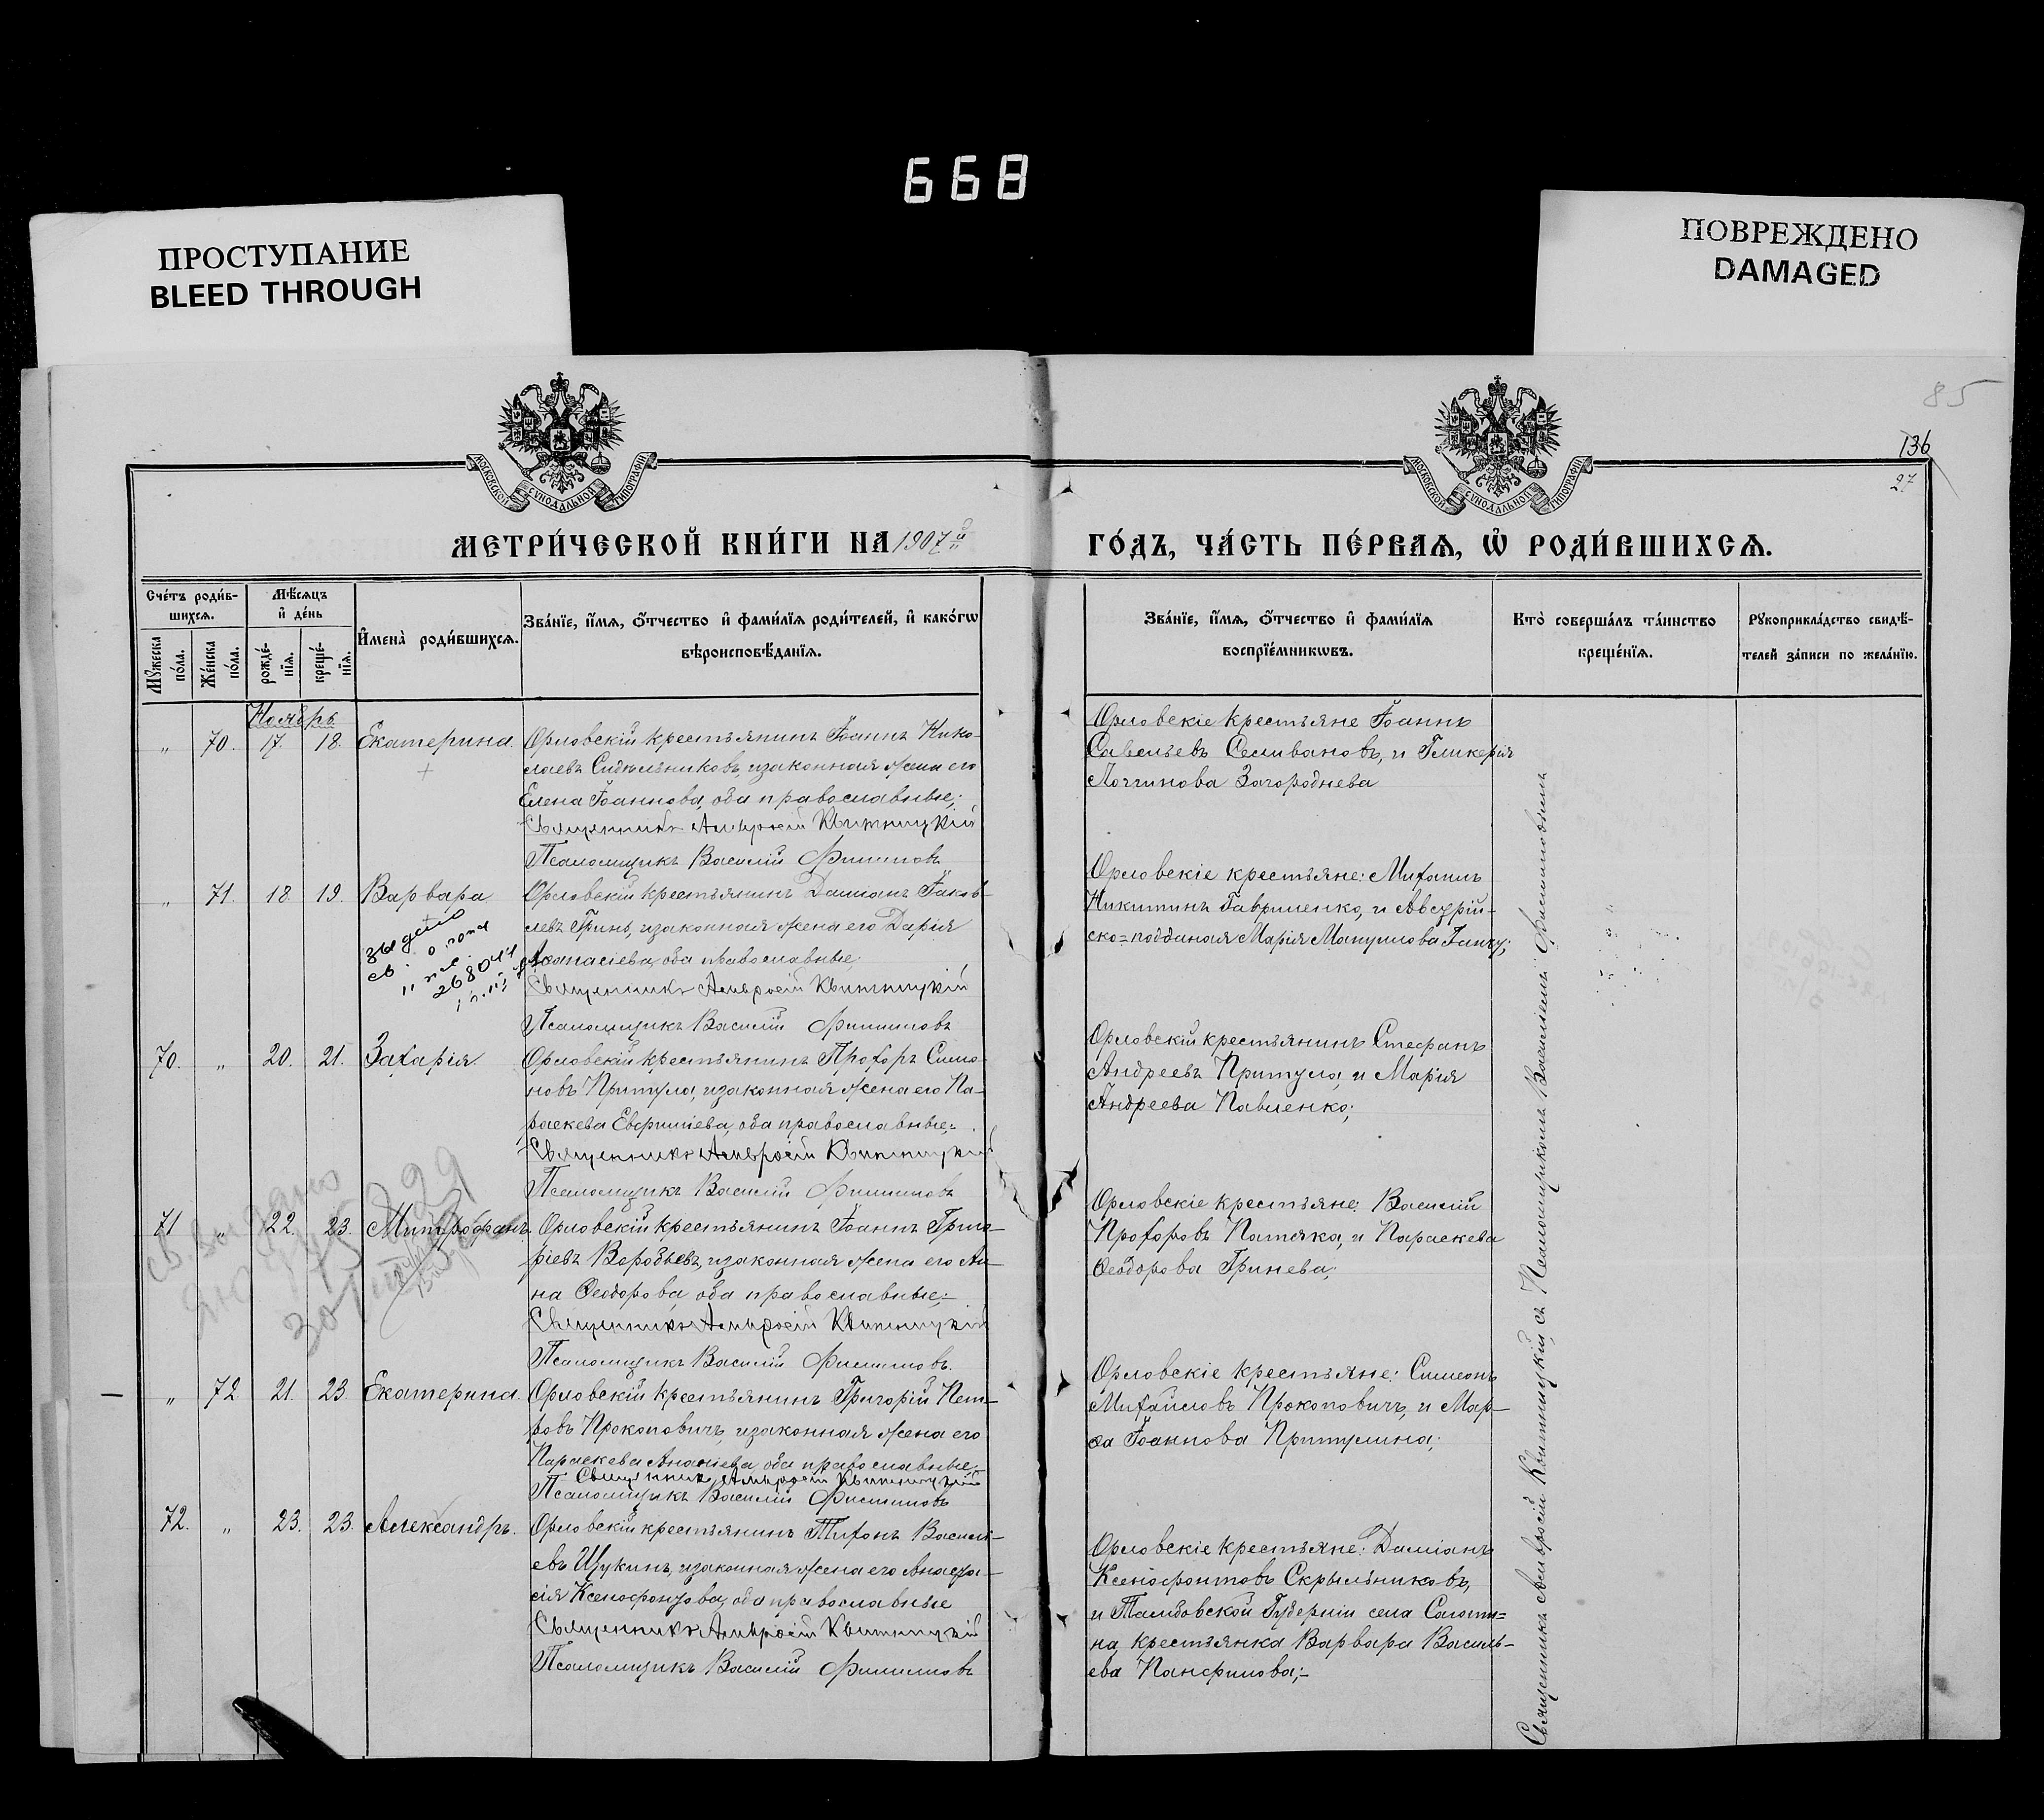 668
ПРОСТУПАНИЕ
BLEED THROUGH
ПОВРЕЖДЕНО
DAMAGED
85
136
27
МОСКОВСКОЙ СѴНОДАЛЬНОЙ ТИПОГРАФІИ
МОСКОВСКОЙ СѴНОДАЛЬНОЙ ТИПОГРАФІИ
МЕТРИ́ЧЕСКОЙ КНИ́ГИ НА 1907й
ГО́ДЪ, ЧА́СТЬ ПЕ́РВАѦ, Ѡ҆ РОДИ́ВШИХСѦ.
Счє́тъ роди́в-
шихсѧ.
Мꙋ́жеска по́ла.
Же́нска по́ла.
Мѣ́сѧцъ
и҆ де́нь
рожде́-
нїѧ.
креще́-
нїѧ.
И҆мена̀ роди́вшихсѧ.
Зва́нїе, и҆́мѧ, ѻ҆́тчество и҆ фами́лїѧ роди́телей, и҆ како́гѡ
вѣроисповѣ́данїѧ.
Зва́нїе, и҆́мѧ, ѻ҆́тчество и҆ фами́лїѧ
воспрїе́мникѡвъ.
Кто̀ соверша́лъ та́инство
креще́нїѧ.
Рꙋкоприкла́дство свидѣ́-
телей за́писи по жела́нїю.
Ноябрь
„ 70. 17. 18. Екатерина. Орловскій крестьянинъ Іоаннъ Нико-
лаевъ Сидѣльниковъ, изаконная жена его
Елена Іоаннова, оба православные;
Священникъ Амвросій Квитницкій
Псаломщикъ Василій Филиповъ
Орловскіе крестьяне Іоаннъ
Савельевъ Селивановъ, и Гликерія
Логгинова Загороднева
„ 71. 18. 19. Варвара Орловскій крестьянинъ Даміанъ Іаков-
левъ Гринь, изаконная жена его Дарія
Аѳанасіева, оба православные;
Священникъ Амвросій Квитницкій
Псаломщикъ Василій Филиповъ
268044
Орловскіе крестьяне: Михаилъ
Никитинъ Гавриленко, и Австрій-
ско=подданая Марія Мануилова
70. „ 20. 21. Захарія. Орловскій крестьянинъ Прохоръ Симо-
новъ Притула, изаконная жена его Па-
раскева Евфиміева, оба православные;
Священникъ Амвросій Квитницкій
Псаломщикъ Василій Филиповъ
Орловскій крестьянинъ Стефанъ
Андреевъ Притула, и Марія
Андреева Павленко;
71 „ 22. 23. Митрофанъ. Орловскій крестьянинъ Іоаннъ Григо-
ріевъ Воробьевъ, изаконная жена его Ан-
на Ѳеодорова, оба православные;
Священникъ Амвросій Квитницкій
Псаломщикъ Василій Филиповъ.
Орловскіе крестьяне: Василій
Прохоровъ Патяка, и Параскева
Ѳеодорова Гринева;
„ 72 21. 23. Екатерина. Орловскій крестьянинъ Григорій Пет-
ровъ Прокоповичъ, изаконная жена его
Параскева Ананіева, оба православные;
Священникъ Амвросій Квитницкій
Псаломщикъ Василій Филиповъ
Орловскіе крестьяне: Симеонъ
Михайловъ Прокоповичъ, и Мар-
ѳа Іоаннова Притулина;
72. „ 23. 23. Александръ. Орловскій крестьянинъ Тихонъ Василь-
евъ Щукинъ, изаконная жена его Анаста-
сія Ксенофонтова, оба православные
Священникъ Амвросій Квитницкій
Псаломщикъ Василій Филиповъ
Орловскіе крестьяне: Даміанъ
Ксенофонтовъ Скрыльниковъ,
и Тамбовской Губерніи села
на крестьянка Варвара Василь-
ева Панфилова;
Священникъ Амвросій Квитницкій съ Псаломщикомъ Василіемъ Филиповымъ